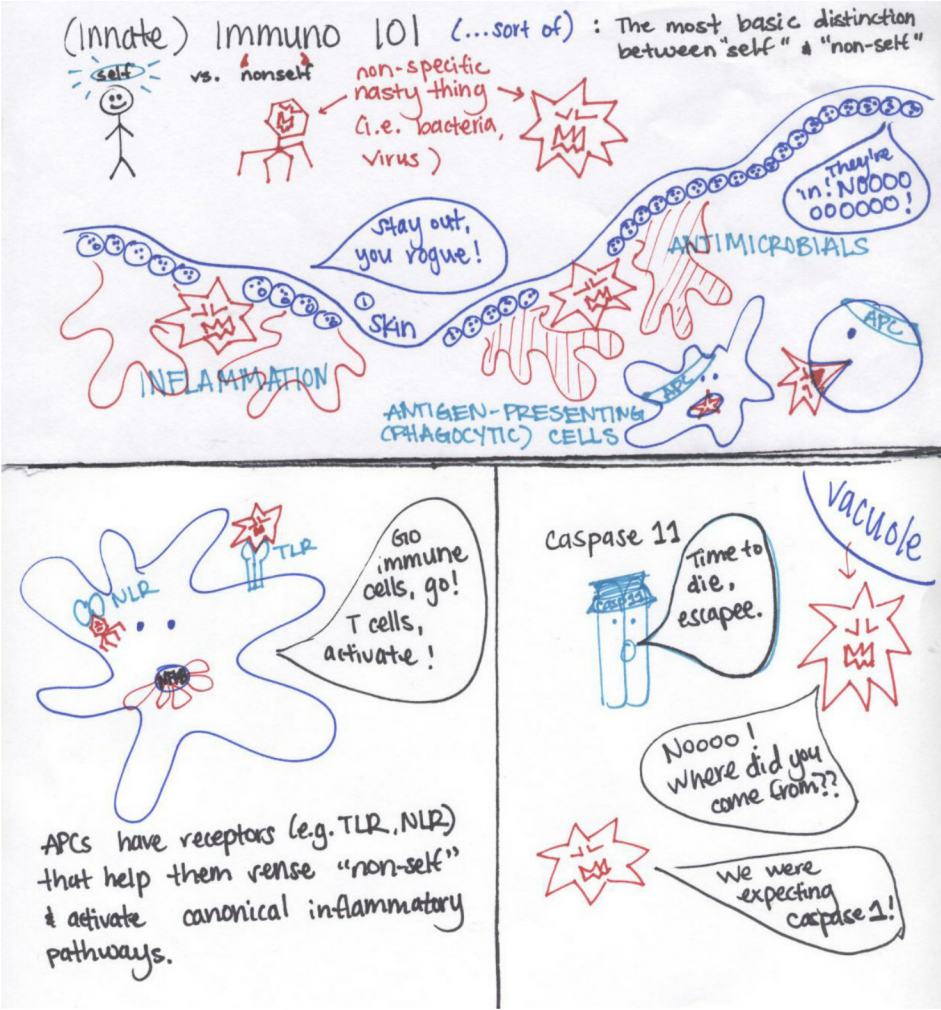 (Innate) Immuno 101 (...sort of) : The most basic distinction
between "self" & "non-self"
self vs. nonself
non-specific
nasty thing
(i.e. bacteria,
virus)
They're
in! NOOOO
OOOOOO!
Stay out,
you rogue!
ANTIMICROBIALS
skin
INFLAMMATION
APC
APC
ANTIGEN-PRESENTING
(PHAGOCYTIC) CELLS
TLR
NLR
Go
immune
cells, go!
T cells,
activate!
APCs have receptors (e.g. TLR, NLR)
that help them sense "non-self"
& activate canonical inflammatory
pathways.
vacuole
caspase 11
Time to
die,
escapee.
Noooo!
Where did you
come from??
We were
expecting
caspase 1!